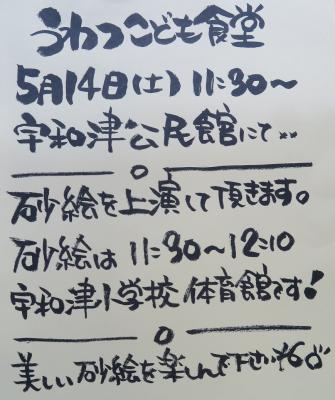 うわつこども食堂
5月14日(土) 11:30〜
宇和津公民館にて..
砂絵を上演して頂きます。
砂絵は 11:30〜12:10
宇和津小学校 体育館です!
美しい砂絵を楽しんで下さい